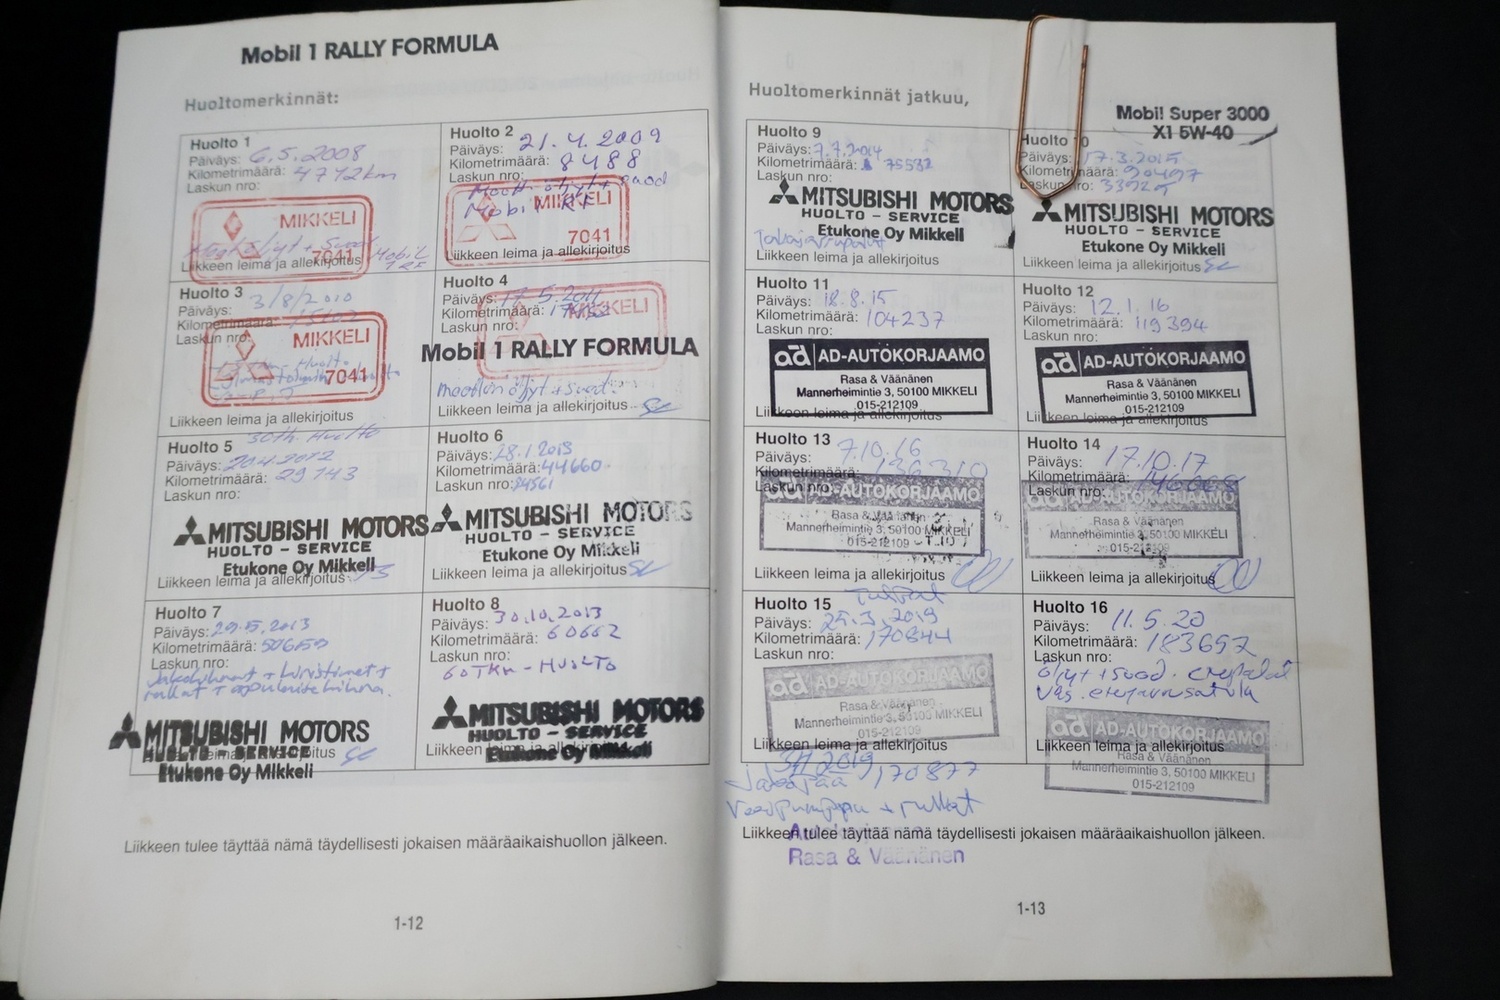 Mobil 1 RALLY FORMULA
Huoltomerkinnät:
Huolto 1
Päiväys: 6.5.2008
Kilometrimäärä: 4712km
Laskun nro:
MIKKELI
7041
Liikkeen leima ja allekirjoitus
Huolto 2
Päiväys: 21.4.2009
Kilometrimäärä: 8488
Laskun nro:
MIKKELI
7041
Liikkeen leima ja allekirjoitus
Huolto 3
Päiväys: 3/8/2010
Kilometrimäärä:
Laskun nro:
MIKKELI
7041
Liikkeen leima ja allekirjoitus
Huolto 4
Päiväys: 17.5.2011
Kilometrimäärä:
Laskun nro:
MIKKELI
Mobil 1 RALLY FORMULA
moottorin öljyt + suod.
Liikkeen leima ja allekirjoitus
Huolto 5 30th. Huolto
Päiväys: 20.4.2012
Kilometrimäärä: 29743
Laskun nro:
MITSUBISHI MOTORS
HUOLTO - SERVICE
Etukone Oy Mikkeli
Liikkeen leima ja allekirjoitus
Huolto 6
Päiväys: 28.1.2013
Kilometrimäärä: 44660
Laskun nro:
MITSUBISHI MOTORS
HUOLTO - SERVICE
Etukone Oy Mikkeli
Liikkeen leima ja allekirjoitus
Huolto 7
Päiväys: 29.5.2013
Kilometrimäärä:
Laskun nro:
jakohihnat + kiristimet +
rullat + apulaitehihna.
MITSUBISHI MOTORS
HUOLTO - SERVICE
Etukone Oy Mikkeli
Huolto 8
Päiväys: 30.10.2013
Kilometrimäärä: 60662
Laskun nro:
60TKM - HUOLTO
MITSUBISHI MOTORS
HUOLTO - SERVICE
Etukone Oy Mikkeli
Liikkeen tulee täyttää nämä täydellisesti jokaisen määräaikaishuollon jälkeen.
1-12
Huoltomerkinnät jatkuu,
Mobil Super 3000
X1 5W-40
Huolto 9
Päiväys: 7.7.2014
Kilometrimäärä: 75532
Laskun nro:
MITSUBISHI MOTORS
HUOLTO - SERVICE
Etukone Oy Mikkeli
Takajarrupalat
Liikkeen leima ja allekirjoitus
Huolto 10
Päiväys: 17.3.2015
Kilometrimäärä: 90497
Laskun nro:
MITSUBISHI MOTORS
HUOLTO - SERVICE
Etukone Oy Mikkeli
Liikkeen leima ja allekirjoitus
Huolto 11
Päiväys: 18.8.15
Kilometrimäärä: 104237
Laskun nro:
ad AD-AUTOKORJAAMO
Rasa & Väänänen
Mannerheimintie 3, 50100 MIKKELI
015-212109
Liikkeen leima ja allekirjoitus
Huolto 12
Päiväys: 12.1.16
Kilometrimäärä: 119394
Laskun nro:
ad AD-AUTOKORJAAMO
Rasa & Väänänen
Mannerheimintie 3, 50100 MIKKELI
015-212109
Liikkeen leima ja allekirjoitus
Huolto 13
Päiväys: 7.10.16
Kilometrimäärä: 136310
Laskun nro:
ad AD-AUTOKORJAAMO
Rasa & Väänänen
Mannerheimintie 3, 50100 MIKKELI
015-212109
Liikkeen leima ja allekirjoitus
Huolto 14
Päiväys: 17.10.17
Kilometrimäärä:
Laskun nro:
ad AD-AUTOKORJAAMO
Rasa & Väänänen
Mannerheimintie 3, 50100 MIKKELI
015-212109
Liikkeen leima ja allekirjoitus
Huolto 15
Päiväys: 25.3.2019
Kilometrimäärä: 170844
Laskun nro:
ad AD-AUTOKORJAAMO
Rasa & Väänänen
Mannerheimintie 3, 50100 MIKKELI
015-212109
Liikkeen leima ja allekirjoitus
2019, 170877
Jakopää
Vesipumppu + rullat
Rasa & Väänänen
Huolto 16
Päiväys: 11.5.20
Kilometrimäärä: 183692
Laskun nro:
öljyt + suod.
ad AD-AUTOKORJAAMO
Liikkeen leima ja allekirjoitus
Rasa & Väänänen
Mannerheimintie 3, 50100 MIKKELI
015-212109
Liikkeen tulee täyttää nämä täydellisesti jokaisen määräaikaishuollon jälkeen.
1-13